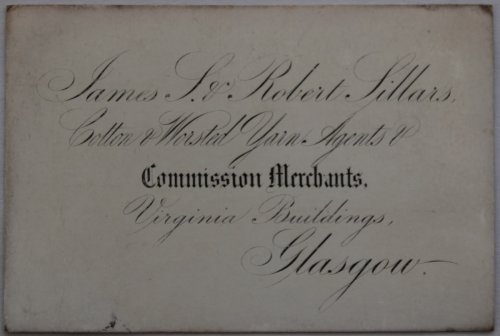 James S. & Robert Sillars,
Cotton & Worsted Yarn Agents &
Commission Merchants,
Virginia Buildings,
Glasgow.